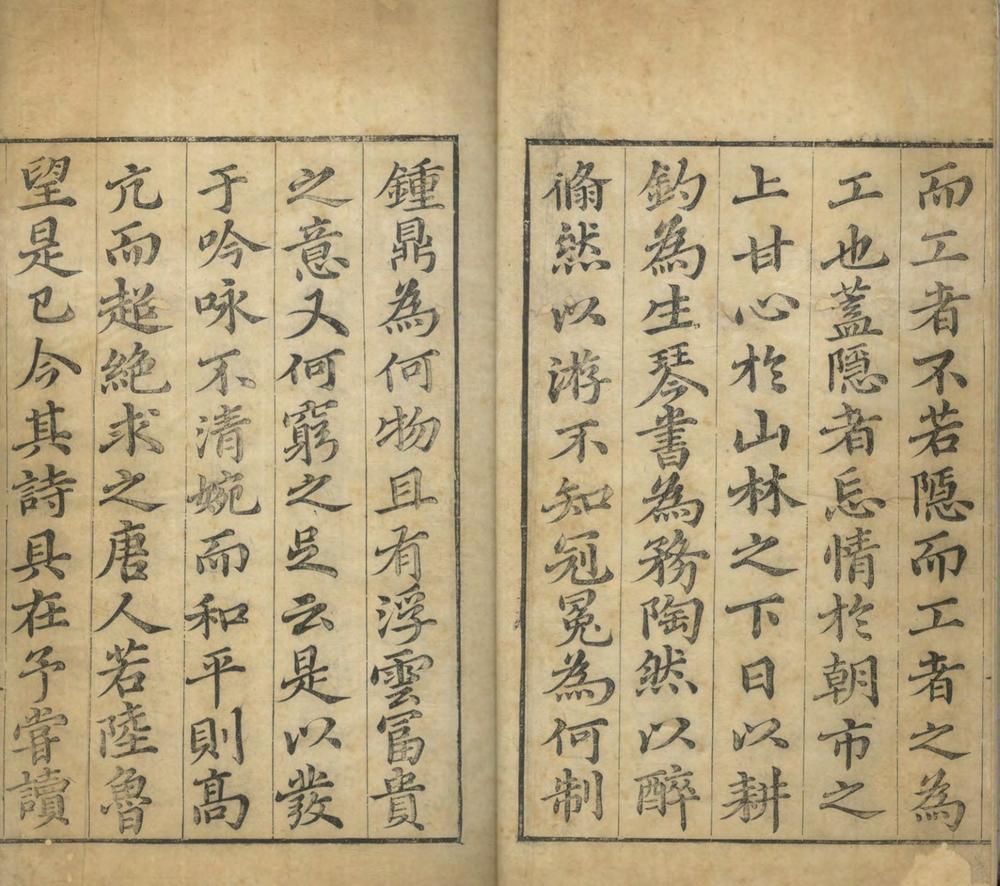 而工者不若隠而工者之為
工也蓋隠者忘情於朝市之
上甘心於山林之下日以耕
釣為生琴書為務陶然以醉
翛然以游不知冠冕為何制
鍾鼎為何物且有浮雲富貴
之意又何窮之足云是以發
于吟咏不清婉而和平則高
亢而超絶求之唐人若陸魯
望是已今其詩具在予嘗讀